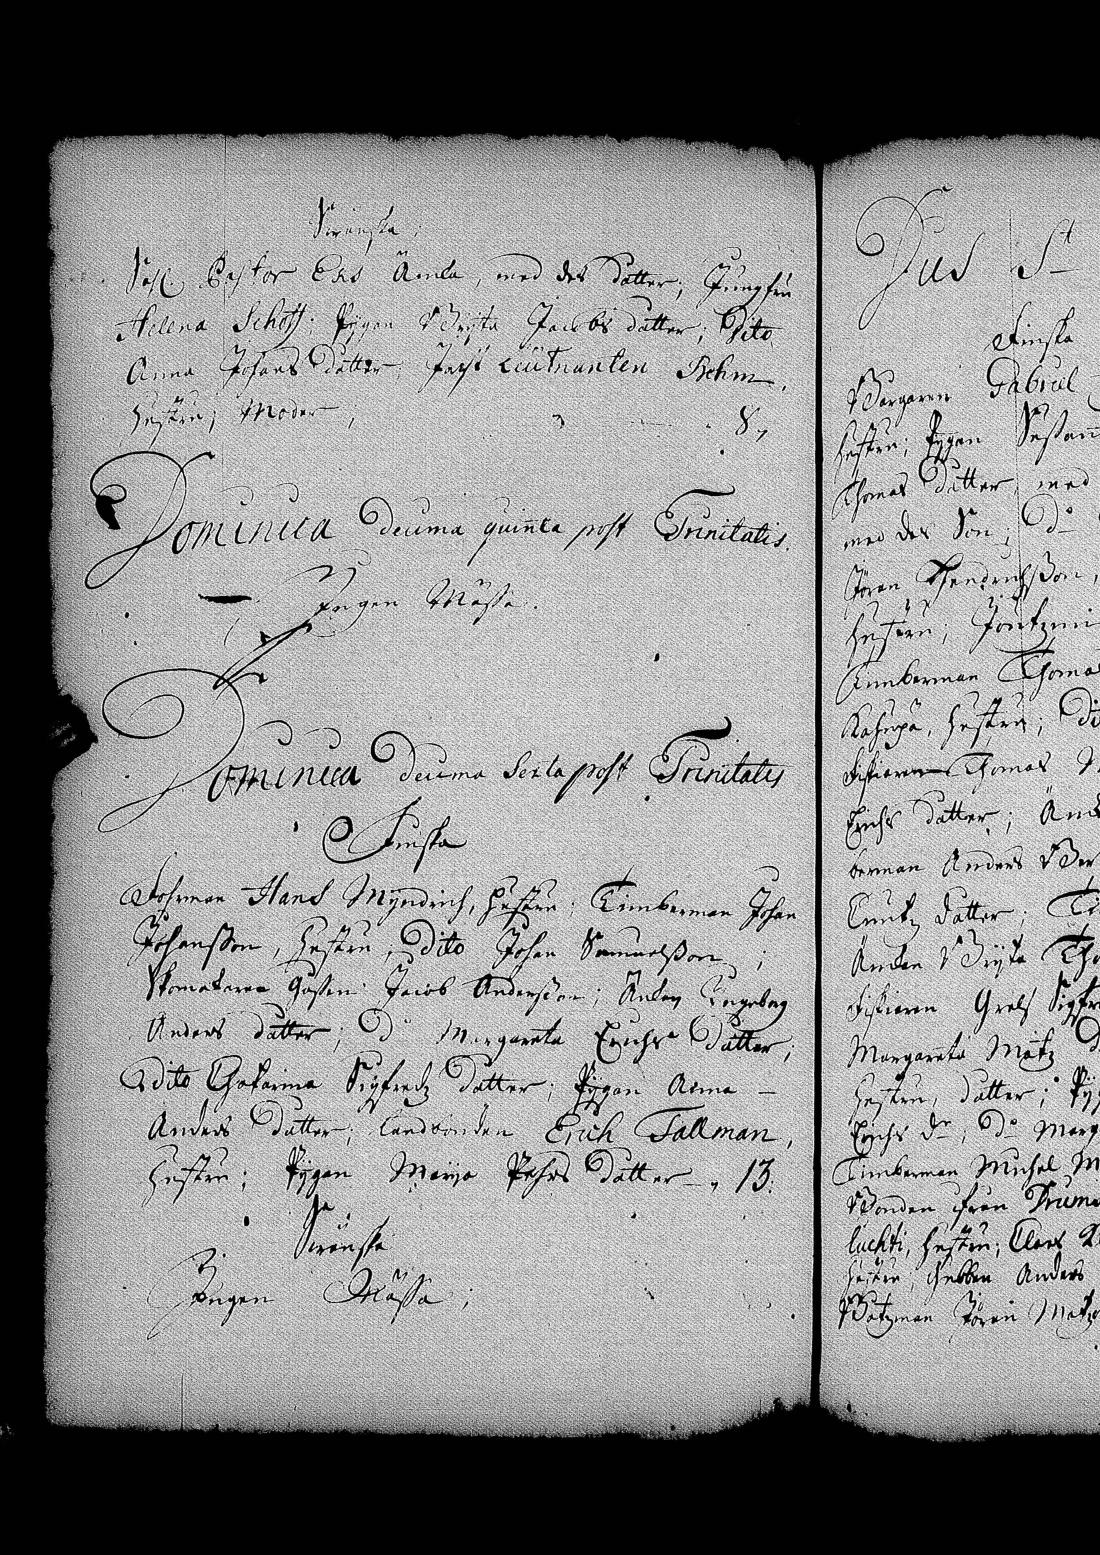 Swenska;
Sahl. Pastor Eks Änkia, med des dotter; Jungfru
Helena Schoff; Pigan Brijta Jacobs dotter; Dito
Anna Johans dotter; Leutnanten Behm,
hustru; Moder; 8,
Dominica decima quinta post Trinitatis.
Ingen Mässa.
Dominica decima Sexta post Trinitatis
Finska
Fohrman Hans Myndrich, hustru; Timberman Johan
Johansson, hustru; Dito Johan Samuelsson;
Skomakare Gossen Jacob Andersson; Änkan Ingeborg
Anders dotter; Do Margareta Erichs dotter;
Dito Chatarina Sigfredz dotter; Pigan Anna –
Anders dotter; Landbonden Erich Tallman,
hustru; Pigan Marija Pehrs dotter – 13.
Swenska
Ingen Mässa;
Dus St
Finska
Borgaren Gabriel
hustru; Pigan
Thomas dotter med
med des Son; Do
Jören Hendrichsson,
hustru;
Timberman Thomas
hustru; Di
Fiskaren Thomas
Erichs dotter;
berman Anders
Knutz dotter; Ti
Änkan Brijta Tho
Fiskaren Grels Sigfre
Margareta Matz D
hustru, dotter; Pig
Erichs dr; Do Marg
Timberman Michel M
Bonden från
luchti, hustru; Claes
hustru, Gubben Anders
Båtzman Jören Matz